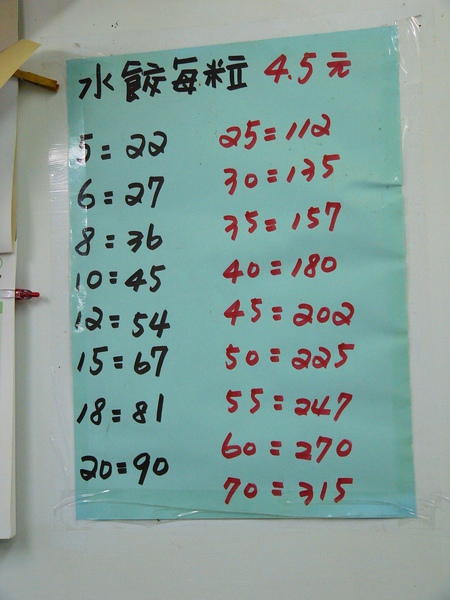 水餃每粒 4.5元
5=22
6=27
8=36
10=45
12=54
15=67
18=81
20=90
25=112
30=135
35=157
40=180
45=202
50=225
55=247
60=270
70=315